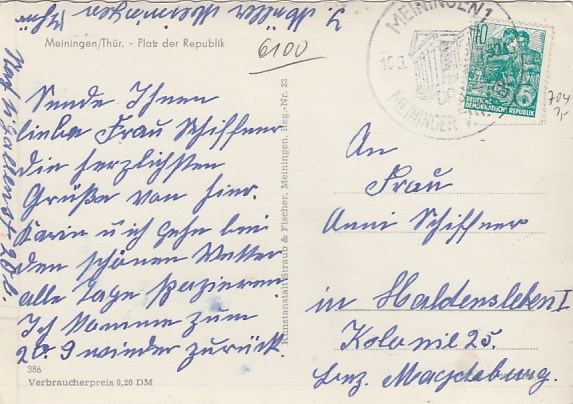 Meiningen/Thür. - Platz der Republik
6100
Sende Ihnen
liebe Frau Schiffner
die herzlichsten
Grüße von hier.
Karin u ich gehn bei
den schönen Wetter
alle Tage spazieren
Ich komme zum
20.9 wieder zurück.
386
Verbraucherpreis 0,20 DM
Kunstanstalt Straub & Fischer, Meiningen, Reg.-Nr. 23
MEININGEN 1
MEININGER
10
DEUTSCHE
DEMOKRATISCHE REPUBLIK
704
An
Frau
Anni Schiffner
in Haldensleben I
Kolonie 25.
bez. Magdeburg.